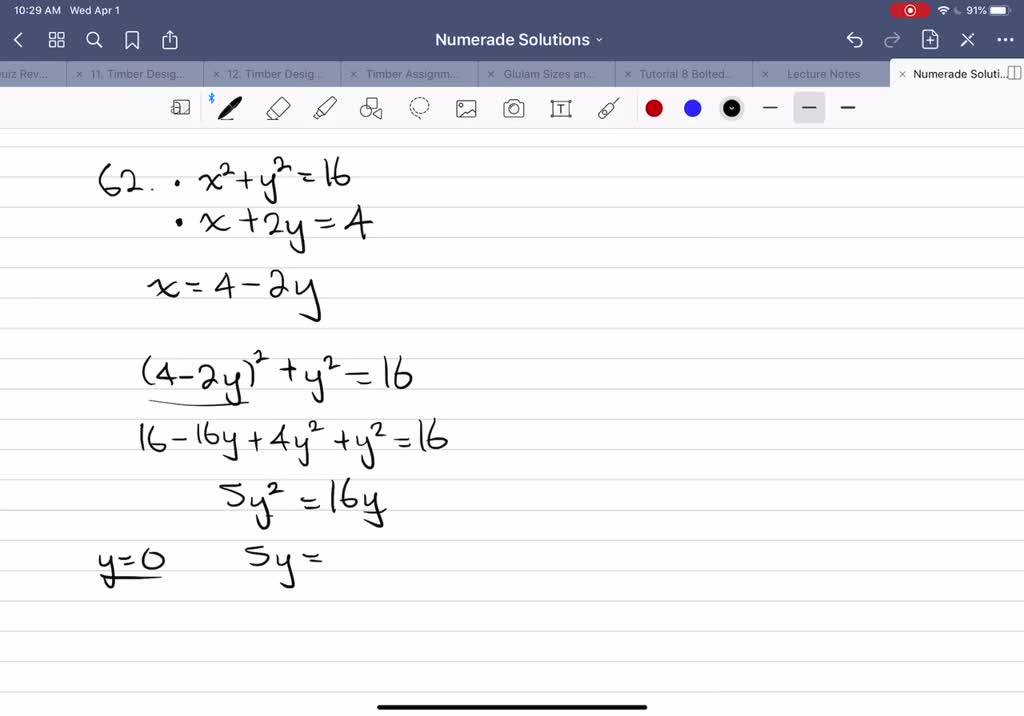 10:29 AM Wed Apr 1
91%
Numerade Solutions
uiz Rev...
11. Timber Desig...
12. Timber Desig...
Timber Assignm...
Glulam Sizes an...
Tutorial 8 Bolted...
Lecture Notes
Numerade Soluti...
62. · x² + y² = 16
· x + 2y = 4
x = 4 - 2y
(4-2y)² + y² = 16
16 - 16y + 4y² + y² = 16
5y² = 16y
y=0 5y =